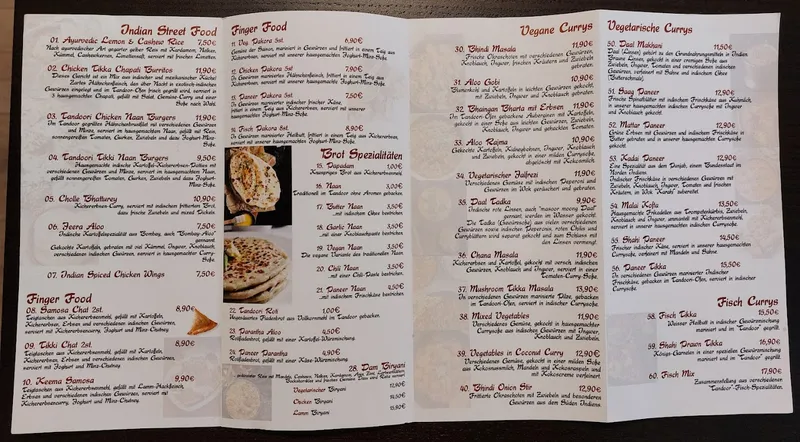 Indian Street Food
01. Ayurvedic Lemon & Cashew Rice 7,50€
Nach ayurvedischer Art gegarter gelber Reis mit Mandeln, Nelken,
Kümmel, Cashewnüssen, Limettensaft, serviert mit frischen Limetten.
02. Chicken Tikka Chapati Burritos 11,90€
Dieses Gericht ist ein Mix aus indischer und mexikanischer Küche!
Zartes Hähnchenfleisch, das über Nacht in exotisch indischen
Gewürzen eingelegt und im Tandoor-Ofen frisch gegrillt wird, serviert in
3 hausgemachten Chapati, gefüllt mit Salat, Gemüse-Curry und einer
Soße nach Wahl.
03. Tandoori Chicken Naan Burgers 11,90€
Im Tandoor gegrilltes Hähnchenbrustfilet mit verschiedenen Gewürzen
und Minze, serviert im hausgemachten Naan, gefüllt mit Reis,
sonnengereiften Tomaten, Gurken, Zwiebeln und dazu Joghurt-
Mint-Soße.
04. Tandoori Tikki Naan Burgers 9,50€
Hausgemachte indische Kartoffel-Kichererbsen-Patties mit
verschiedenen Gewürzen und Minze, serviert im hausgemachten Naan,
gefüllt sonnengereiften Tomaten, Gurken, Zwiebeln und dazu Joghurt-
Mint-Soße.
05. Cholle Bhatturey 10,90€
Kichererbsen-Curry, serviert mit indischem frittierten Brot,
dazu frische Zwiebeln und mixed Pickles.
06. Jeera Aloo 7,50€
Indische Kartoffelspezialität aus "Bombay, auch "Bombay-Aloo"
genannt
Gekochte Kartoffeln, gebraten mit viel Kümmel, Ingwer, Knoblauch,
verschiedenen indischen Gewürzen, serviert mit hausgemachter Curry-
Soße.
07. Indian Spiced Chicken Wings 7,50€
Finger Food
08. Samosa Chat 2st. 8,90€
Teigtaschen aus Kichererbsenmehl, gefüllt mit Kartoffeln,
Kichererbsen, Erbsen und verschiedenen indischen Gewürzen,
serviert mit Kichererbsencurry, Joghurt und Mint-Chutney.
09. Tikki Chat 2st. 8,90€
Teigtaschen aus Kichererbsenmehl, gefüllt mit Kartoffeln,
Kichererbsen, Erbsen und verschiedenen indischen Gewürzen,
serviert mit Kichererbsencurry, Joghurt und Mint-Chutney.
10. Keema Samosa 9,90€
Teigtaschen aus Kichererbsenmehl, gefüllt mit Lamm-Hackfleisch,
Erbsen und verschiedenen indischen Gewürzen, serviert mit
Kichererbsencurry, Joghurt und Mint-Chutney.
Finger Food
11. Veg. Pakora 5st. 6,90€
Gemüse der Saison, mariniert in Gewürzen und frittiert in einem Teig aus
Kichererbsen, serviert zur hausgemachten Joghurt-Mint-Soße.
12. Chicken Pakora 5st. 7,90€
In Gewürzen mariniertes Hähnchenfleisch, frittiert in einem Teig aus
Kichererbsen, serviert zur hausgemachten Joghurt-Mint-Soße.
13. Paneer Pakora 5st. 7,50€
In Gewürzen marinierter indischer frischer Käse,
frittiert in einem Teig aus Kichererbsen, serviert zur hausgemachten
Joghurt-Mint-Soße.
14. Fisch Pakora 5st. 8,90€
In Gewürzen marinierter Heilbutt, frittiert in einem Teig aus
Kichererbsen, serviert zur hausgemachten Joghurt-Mint-Soße.
Brot Spezialitäten
15. Papadam 1,00€
Knuspriges Brot aus Kichererbsenmehl
16. Naan 3,00€
Traditionell im Tandoor ohne Aromen gebraten.
17. Butter Naan 3,50€
...mit indischem Ghee bestrichen.
18. Garlic Naan 3,50€
...mit einer Knoblauchpaste bestrichen.
19. Vegan Naan 3,50€
Die vegane Variante des traditionellen Naan.
20. Chili Naan 3,50€
...mit einer Chili-Paste bestrichen.
21. Paneer Naan 4,50€
...mit indischem Frischkäse bestrichen.
22. Tandoori Roti 1,00€
Ungesäuertes Fladenbrot aus Vollkornmehl im Tandoor gebacken.
23. Parantha Aloo 4,50€
Reisfladenbrot, gefüllt mit einer Kartoffel-Würzmischung.
24. Paneer Parantha 4,90€
Reisfladenbrot, gefüllt mit einer Käse-Würzmischung.
28. Dam Biryani
Vegetarischer Biryani 12,90€
Chicken Biryani 14,50€
Lamm Biryani 15,90€
Vegane Currys
30. Bhindi Masala 11,90€
Frische Okraschoten mit verschiedenen Gewürzen,
Knoblauch, Ingwer, frischen Kräutern und Zwiebeln
31. Aloo Gobi 10,90€
Blumenkohl und Kartoffeln in leichten Gewürzen, gekocht
mit Zwiebeln, Ingwer und Knoblauch.
32. Bhaingan Bharta mit Erbsen 11,90€
Im Tandoor-Ofen gebackene Auberginen mit Kartoffeln,
gekocht in einer Soße aus leichten Gewürzen, Zwiebeln,
Knoblauch, Ingwer und gehackten Tomaten.
33. Aloo Rajma 10,90€
Gekochte Kartoffeln, Kidneybohnen, Ingwer, Knoblauch
und Zwiebeln, gekocht in einer milden Currysoße,
abgelöscht mit Kokosmilch.
34. Vegetarischer Jalfrezi 11,90€
Verschiedene Gemüse mit indischen Peperoni und
Gewürzen im Wok geröstet und gebraten.
35. Daal Tadka 9,90€
Indische rote Linsen, auch "masoor moong Daal"
genannt, werden im Wasser gekocht.
Die Tadka (Gewürzsoße) aus vielen verschiedenen
Gewürzen sowie indischen Peperonis, roten Chilis und
Curryblättern wird separat gekocht und zum Schluss mit
den Linsen vermengt.
36. Chana Masala 11,90€
Kichererbsen und Kartoffel, gekocht mit versch. indischen
Gewürzen, Knoblauch und Ingwer, serviert in einer
Tomaten-Curry-Soße.
37. Mushroom Tikka Masala 13,90€
In verschiedenen Gewürzen marinierte Pilze, gebacken im
Tandoor-Ofen, serviert in indischer Currysoße.
38. Mixed Vegetables 11,90€
Verschiedenes Gemüse, gekocht in hausgemachter
Currysoße aus indischen Gewürzen, Knoblauch und
Ingwer.
39. Vegetables in Coconut Curry 12,90€
Verschiedene Gemüse, gekocht in einer milden Soße
aus Kokosnussmilch, Mandeln und Kokosraspeln und
mit Kokoscreme verfeinert
40. Bhindi Onion Stir 12,90€
Frittierte Okraschoten mit Zwiebeln und besonderen
Gewürzen aus dem Süden Indiens
Vegetarische Currys
50. Daal Makhani 11,50€
Daal (Linsen) gehört zu den Grundnahrungsmitteln in Indien.
Braune Linsen, gekocht in einer cremigen Soße aus
Zwiebeln, Ingwer, Tomaten und verschiedenen indischen
Gewürzen, verfeinert mit Sahne und indischem Ghee
(Butterschmalz).
51. Saag Paneer 12,90€
Frische Spinatblätter mit indischem Frischkäse aus Kuhmilch,
in unserer hausgemachten indischen Currysoße mit Ingwer
und Knoblauch gekocht.
52. Muttar Paneer 12,90€
Grüne Erbsen mit Gewürzen und indischem Frischkäse in
Butter gebraten und in unserer hausgemachten Currysoße
gekocht.
53. Kadai Paneer 12,90€
Eine Spezialität aus dem Punjab, einem Bundesstaat im
Norden Indiens.
Indischer Frischkäse in verschiedenen Gewürzen, mit
Zwiebeln, Knoblauch, Ingwer, Tomaten und frischen
Kräutern, im Wok "Karahi" zubereitet.
54. Malai Kofta 13,50€
Hausgemachte Frikadellen aus Trompetenkürbis, Zwiebeln,
Knoblauch, Ingwer, Mandeln, Kokosraspeln und indischen
Gewürzen, serviert in unserer hausgemachten Currysoße.
55. Shahi Paneer 14,50€
Frischer indischer Käse, serviert in unserer hausgemachten
Currysoße, verfeinert mit Mandeln und Sahne.
56. Paneer Tikka 15,50€
In verschiedenen Gewürzen marinierter Indischer
Frischkäse, gebacken im Tandoor-Ofen, serviert in indischer
Currysoße.
Fisch Currys
58. Fisch Tikka 15,50€
Weisser Heilbutt in indischen Gewürzen mariniert und im
"Tandoor" gegrillt.
59. Shahi Prawn Tikka 16,90€
Königs-Garnelen in einer speziellen Gewürzmischung
mariniert und im "Tandoor" gegrillt.
60. Fisch Mix 17,90€
Zusammenstellung aus verschiedenen
"Tandoor"-Fisch-Spezialitäten.